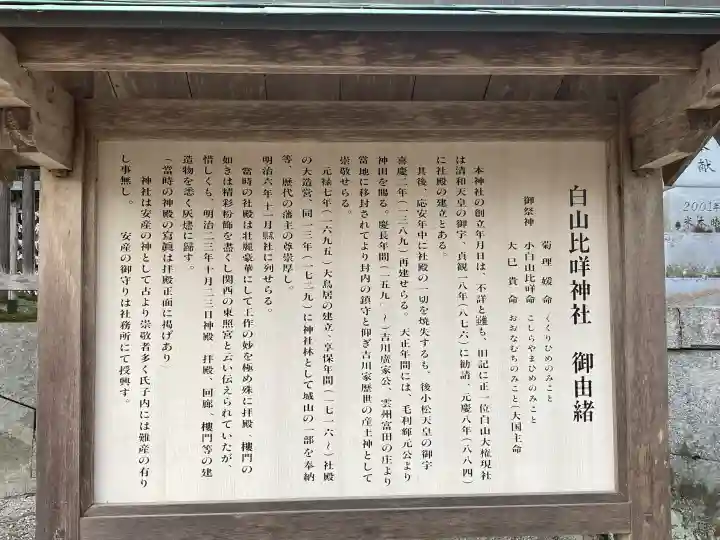 白山比咩神社　御由緒
御祭神
菊理媛命　くくりひめのみこと
小白山比咩命　こしらやまひめのみこと
大己貴命　おおなむちのみこと(大国主命
本神社の創立年月日は、不詳と雖も、旧記に正一位白山大権現社
は清和天皇の御宇、貞観一八年（八七六）に勧請、元慶八年（八八四）
に社殿の建立とある。
其後、応安年中に社殿の一切を焼失するも、後小松天皇の御宇
嘉慶二年（一三八九）再建せらる。天正年間には、毛利輝元公より
神田を賜る。慶長年間（一五九一～）吉川廣家公、雲州富田の庄より
當地に移封されてより封内の鎮守と仰ぎ吉川家歴世の産土神として
崇敬せらる。
元禄七年（一六九五）大鳥居の建立、享保年間（一七一六～）社殿
の大造営、同一三年（一七二九）に神社林として城山の一部を奉納
等、歴代の藩主の尊崇厚し。
明治六年十一月縣社に列せらる。
當時の社殿は壮麗豪華にして工作の妙を極め殊に拝殿、樓門の
如きは精彩粉飾を盡くし関西の東照宮と云い伝えられていたが、
惜しくも、明治二三年十月二三日神殿　拝殿、回廊、樓門等の建
造物を悉く灰燼に歸す。
（當時の神殿の寫眞は拝殿正面に掲げあり）
神社は安産の神として古より崇敬者多く氏子内には難産の有り
し事無し。　安産の御守りは社務所にて授興す。
献
2001年